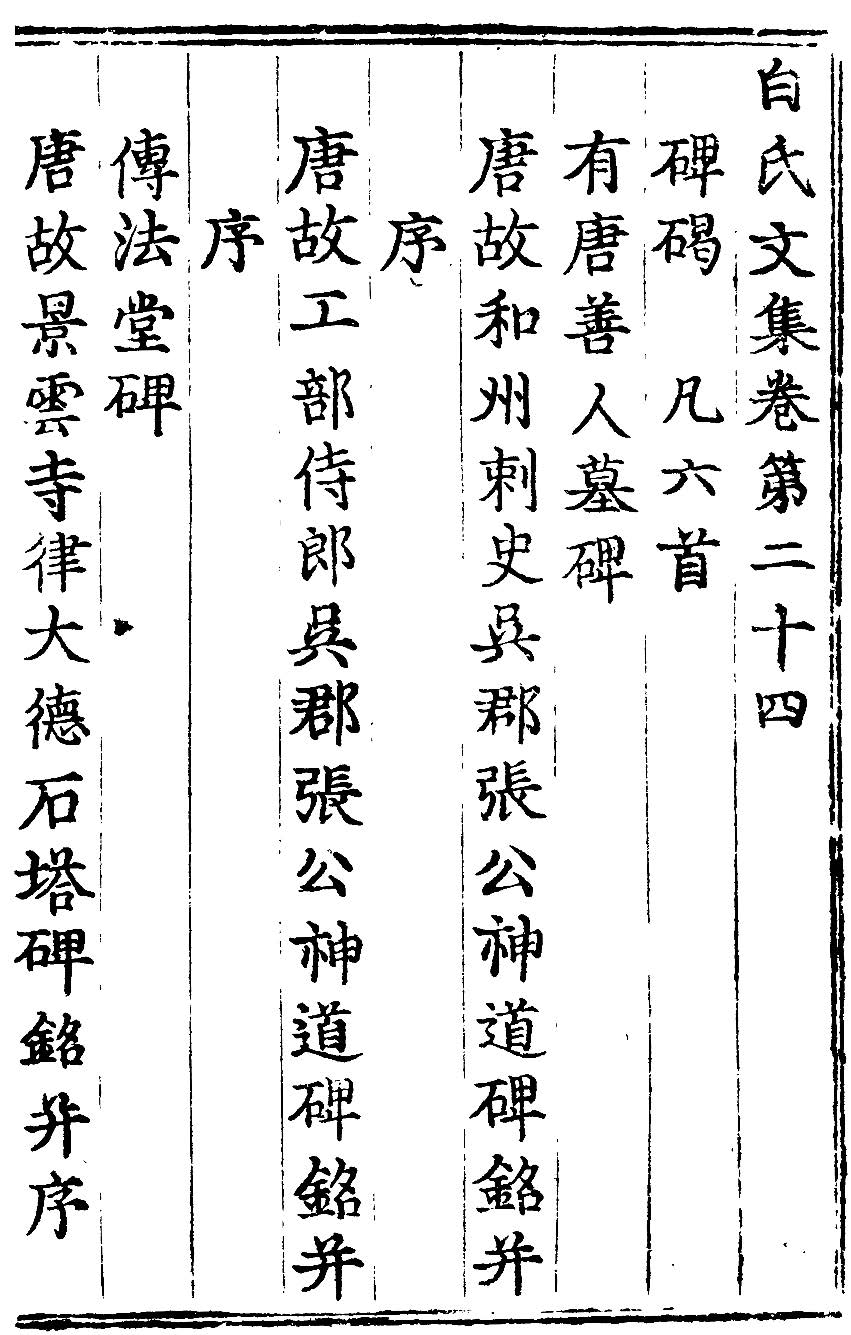 白氏文集卷第二十四
碑碣　凡六首
有唐善人墓碑
唐故和州刺史吳郡張公神道碑銘并
序
唐故工部侍郎吳郡張公神道碑銘并
序
傳法堂碑
唐故景雲寺律大德石塔碑銘并序